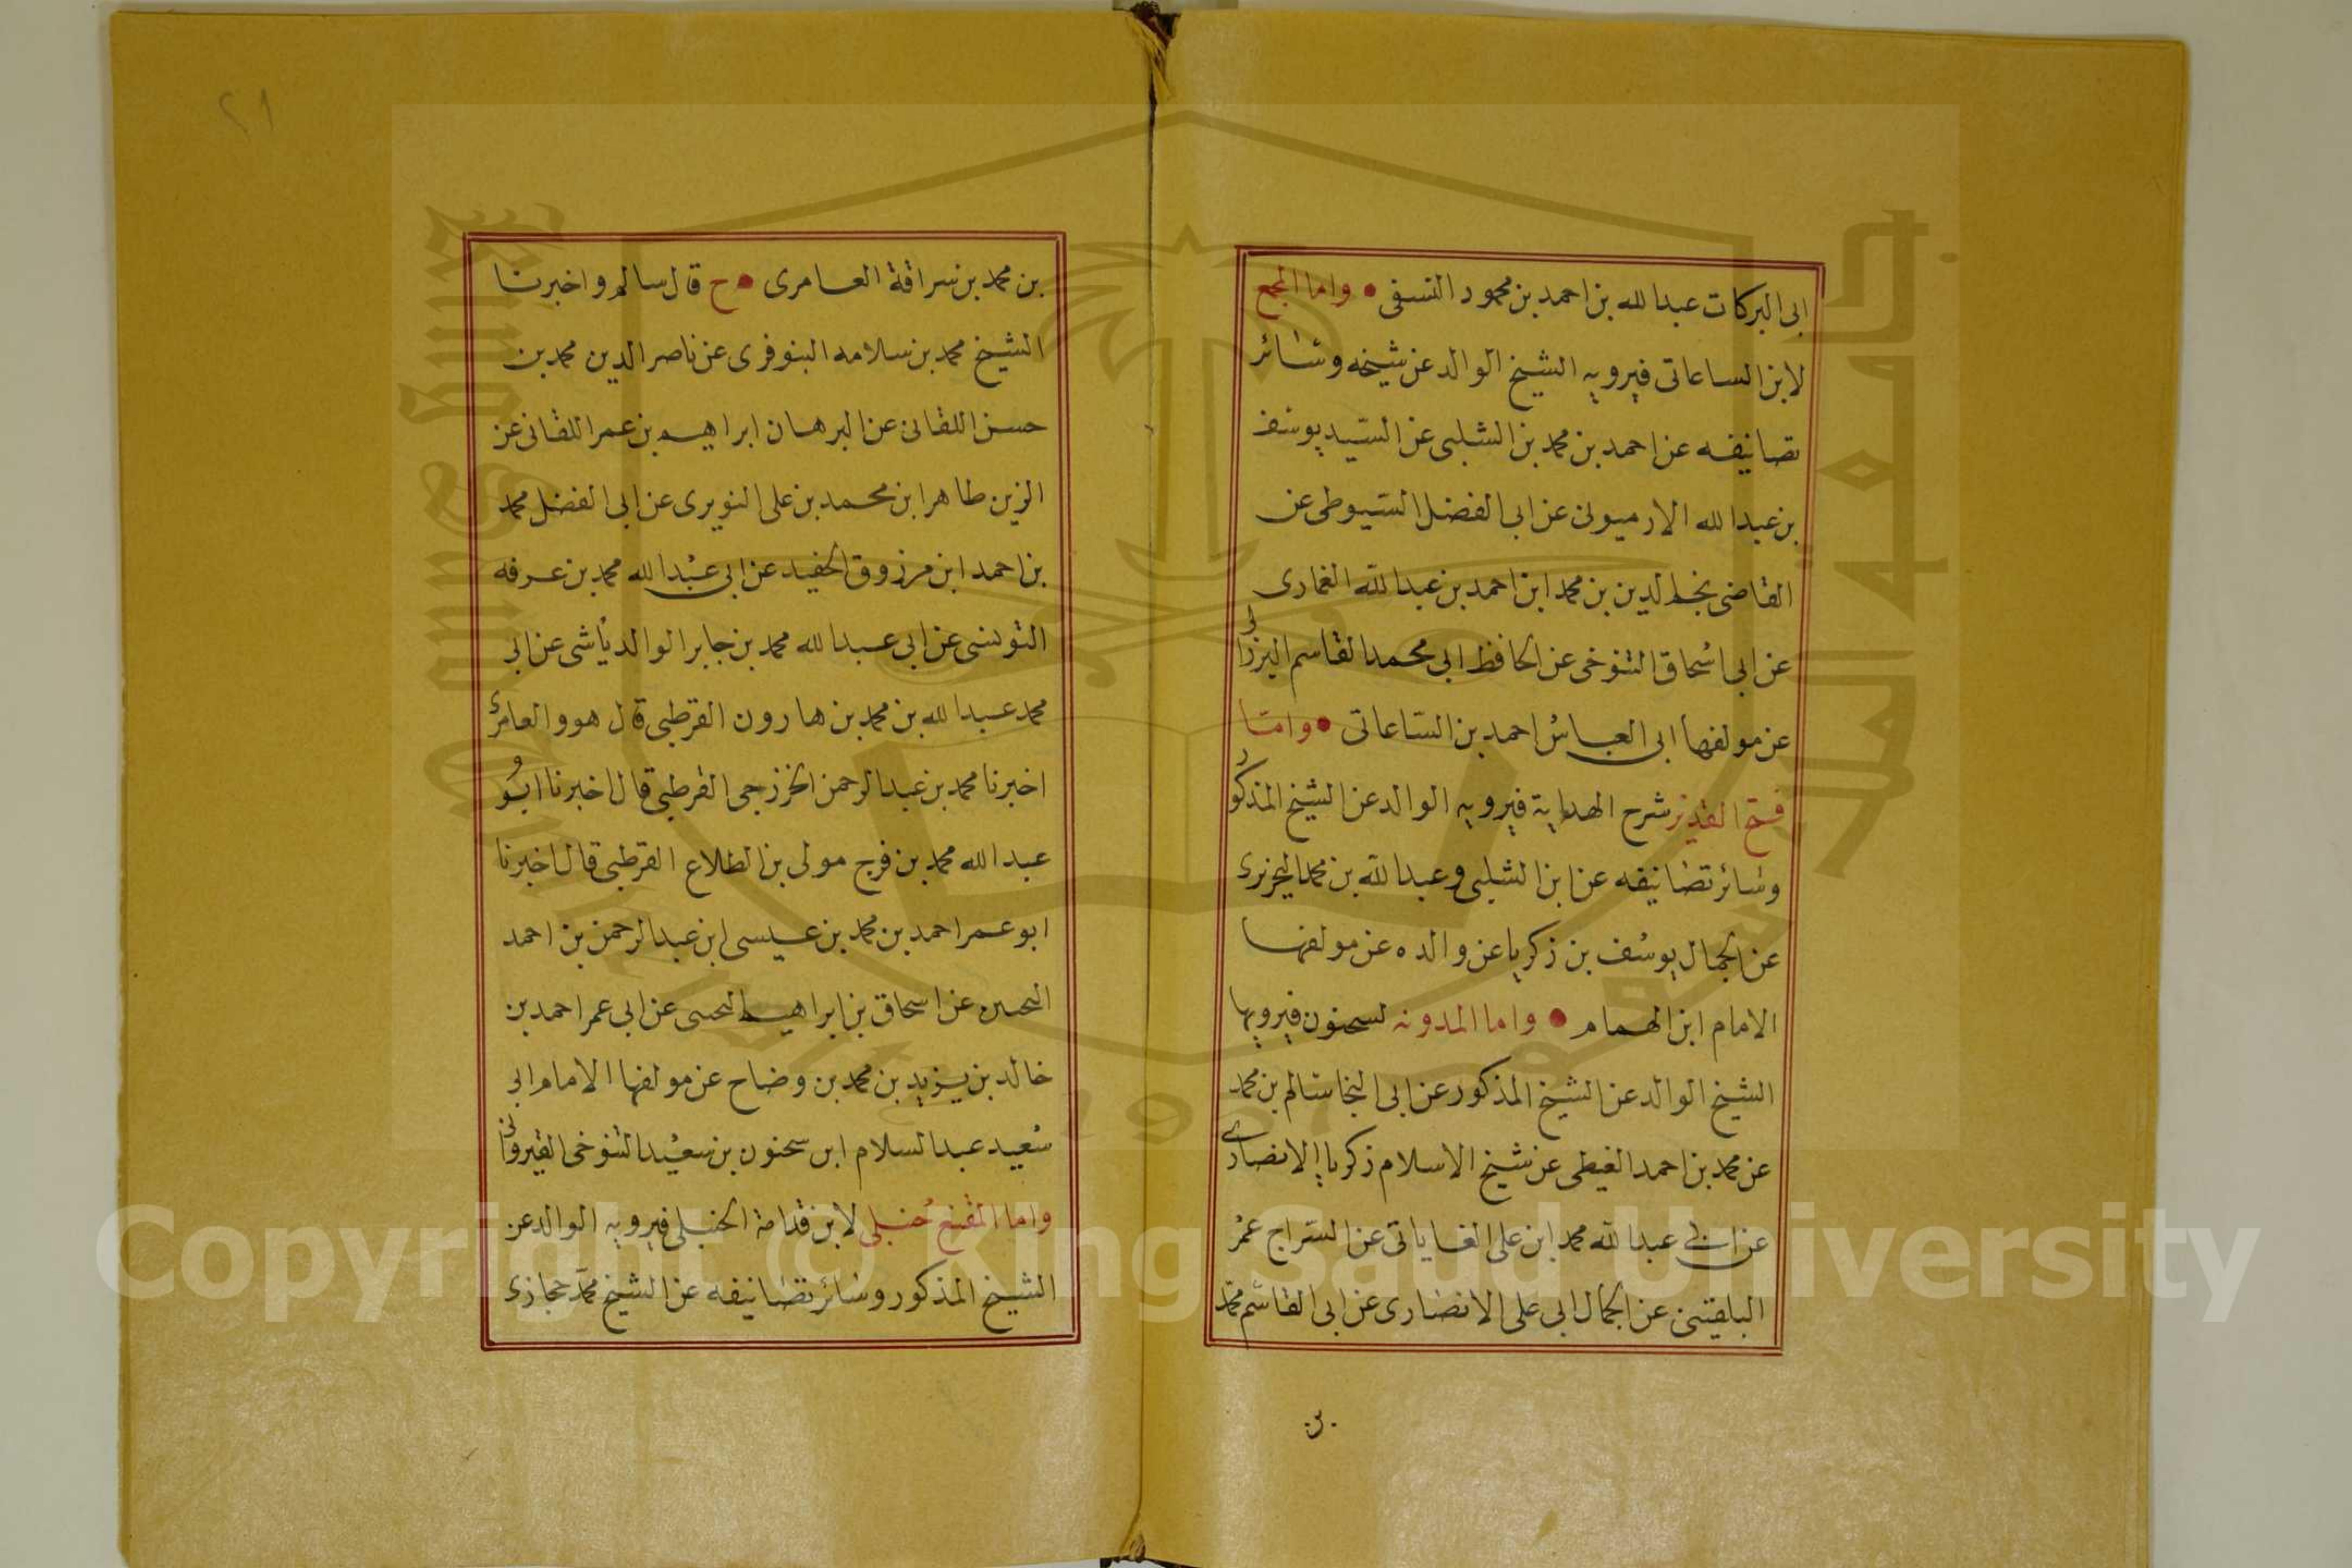 ابى البركات عبدالله بن احمد بن محمود النسفى • واما المجمع
لابن الساعاتى فيرويه الشيخ الوالد عن شيخه وسائر
تصانيفه عن احمد بن محمد بن الشلبى عن السيد يوسف
بن عبدالله الارميونى عن ابى الفضل السيوطى عن
القاضى نجم الدين بن محمد ابن احمد بن عبدالله الغمارى
عن ابى اسحاق التنوخى عن الحافظ ابى محمد القاسم البرزالى
عن مولفها ابى العباس احمد بن الساعاتى • واما
فتح القدير شرح الهداية فيرويه الوالد عن الشيخ المذكور
وسائر تصانيفه عن ابن الشلبى وعبدالله بن محمد
عن الجمال يوسف بن زكريا عن والده عن مولفها
الامام ابن الهمام • واما المدونه لسحنون فيرويها
الشيخ الوالد عن الشيخ المذكور عن ابى النجا سالم بن محمد
عن محمد بن احمد الغيطى عن شيخ الاسلام زكريا الانصارى
عن ابى عبدالله محمد ابن على القاياتى عن السراج عمر
البلقينى عن الجمال ابى على الانصارى عن ابى القاسم محمد
بن
٢١
بن محمد بن سراقة العامرى • ح قال سالم واخبرنا
الشيخ محمد بن سلامه البنوفرى عن ناصر الدين محمد بن
حسن اللقانى عن البرهان ابراهيم بن عمر اللقانى عن
الزين طاهر ابن محمد بن على النويرى عن ابى الفضل محمد
بن احمد ابن مرزوق الحفيد عن ابى عبدالله محمد بن عرفه
التونسى عن ابى عبدالله محمد بن جابر الوادياشى عن ابى
محمد عبدالله بن محمد بن هارون القرطبى قال هو والعامرى
اخبرنا محمد بن عبدالرحمن الخزرجى القرطبى قال اخبرنا ابو
عبدالله محمد بن فرج مولى بن الطلاع القرطبى قال اخبرنا
ابو عمر احمد بن محمد بن عيسى ابن عبدالرحمن بن احمد
عن اسحاق بن ابراهيم عن ابى عمر احمد بن
خالد بن يزيد بن محمد بن وضاح عن مولفها الامام ابى
سعيد عبدالسلام ابن سحنون بن سعيد التنوخى القيروانى
واما المقنع حنبلى لابن قدامة الحنبلى فيرويه الوالد عن
الشيخ المذكور وسائر تصانيفه عن الشيخ محمد حجازى
جامعة الملك سعود
King Saud University
1957
Copyright © King Saud University